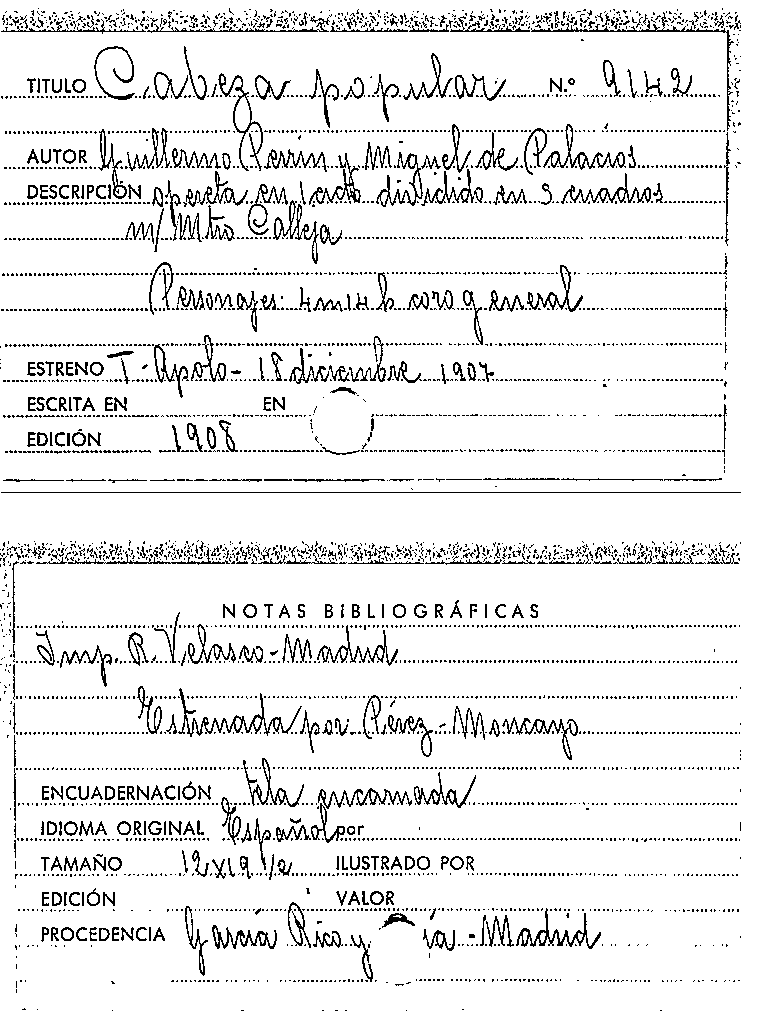 TITULO Cabeza popular N.º 9142
AUTOR Guillermo Perrin y Miguel de Palacios
DESCRIPCIÓN opereta en 1 acto dividido en 3 cuadros
m/ Mtro Calleja
Personajes: 4 m 14 h coro general
ESTRENO T. Apolo - 18 diciembre 1907
ESCRITA EN EN
EDICIÓN 1908
NOTAS BIBLIOGRÁFICAS
Imp. R. Velasco-Madrid
Estrenada por Pérez-Moncayo
ENCUADERNACIÓN tela encarnada
IDIOMA ORIGINAL Español por
TAMAÑO 12x19 1/2 ILUSTRADO POR
EDICIÓN VALOR
PROCEDENCIA García Rico y ía - Madrid